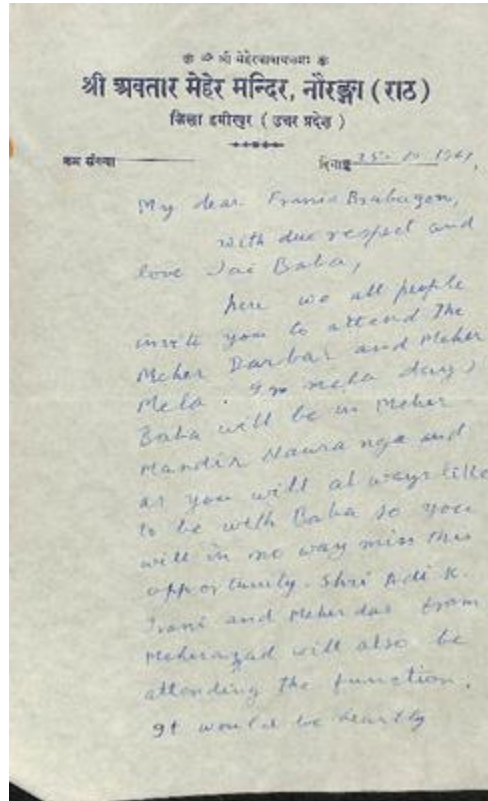 श्री अवतार मेहेर मन्दिर, नौरङ्गा (राठ)
जिला हमीरपुर ( उत्तर प्रदेश )
क्रम संख्या
दिनाङ्क
My dear Francis Brabazon,
with due respect and
love Jai Baba,
here we all people
invite you to attend the
Meher Darbar and Meher
Mela. In mela days
Baba will be in Meher
Mandir Nauranga and
as you will always like
to be with Baba so you
will in no way miss this
opportunity. Shri Adi K.
Irani and Meherdas from
Meherazad will also be
attending the function.
It would be heartly